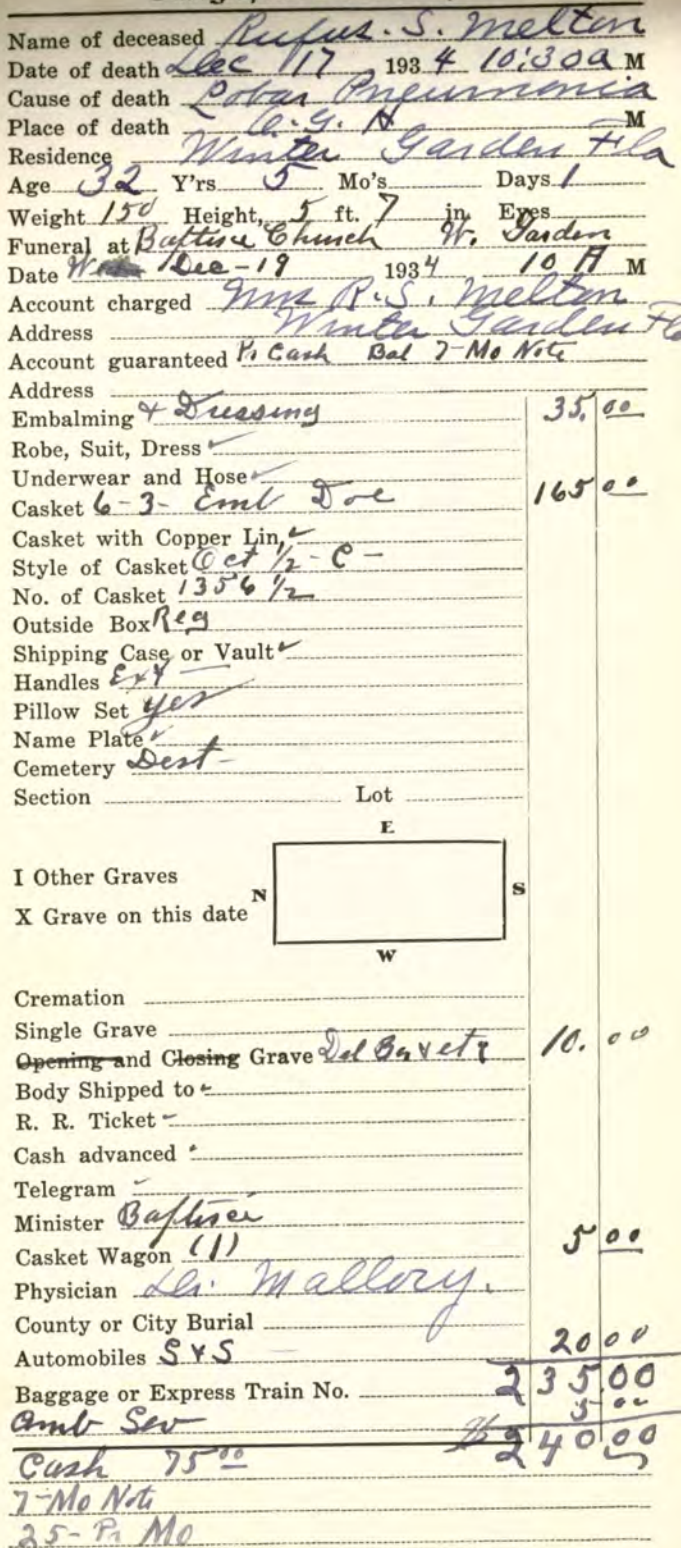 Name of deceased Rufus. S. Melton
Date of death Dec 17 1934 10:30a M
Cause of death Lobar Pneumonia
Place of death O. G. H M
Residence Winter Garden Fla
Age 32 Y'rs 5 Mo's Days 1
Weight 150 Height, 5 ft. 7 in Eyes
Funeral at Baptise Church W. Garden
Date Dec-19 1934 10 A M
Account charged Mrs R.S. Melton
Address Winter Garden Fla
Account guaranteed Pt Cash Bal 7-Mo Note
Address
Embalming & Dressing 35.00
Robe, Suit, Dress
Underwear and Hose
Casket 6-3- Emb Doe 165 00
Casket with Copper Lin,
Style of Casket Oct 1/2 - C -
No. of Casket 1356 1/2
Outside Box Reg
Shipping Case or Vault
Handles Ex
Pillow Set yes
Name Plate
Cemetery
Section Lot
E
I Other Graves
N S
X Grave on this date
W
Cremation
Single Grave
Opening and Closing Grave Del Box & etc 10.00
Body Shipped to
R. R. Ticket
Cash advanced
Telegram
Minister Baptise
Casket Wagon (1) 5 00
Physician Dr. Mallory.
County or City Burial
Automobiles S & S 20 00
Baggage or Express Train No. 235.00
Amb Ser 5 00
$ 240.00
Cash 75 00
7-Mo Note
25- Pr Mo